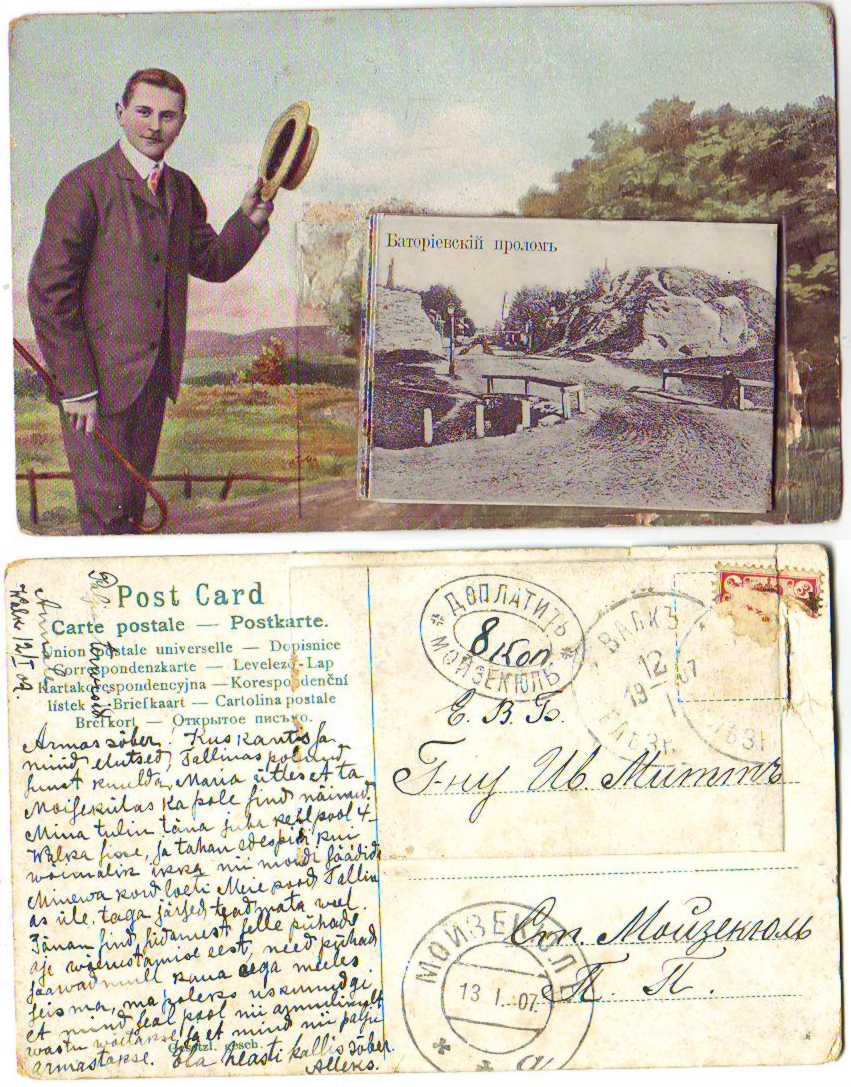 Баторіевскій проломъ
Post Card
Carte postale — Postkarte.
Union postale universelle — Dopisnice
Correspondenzkarte — Levelező-Lap
Kartakorespondencyjna — Korespondenční
lístek — Briefkaart — Cartolina postale
Brefkort — Открытое письмо.
Armas sõber! Kus kants sa
nüüd elutsed, Tallinas polnud
sinust kuulda, Maria ütles et ta
Moisekülas ka pole sind näinud.
Mina tulin täna juba kell pool 4
Walka sisse, ja tahan edespidi kui
woimalik ikka nii moodi sõita
Minewa kord loeti Meie kord Tallin
as üle, taga järjed teadmata weel.
Tänan sind südamest selle pühade
aja eest, need pühad
jääwad mull kaua aega meeles
seisma, ma poleks uskunudgi
et mind seal pool nii armulikult
wastu woetakse ja et mind nii palju
armastakse. Ela heasti kallis sõber.
Alleks.
Gesetzl. gesch.
ДОПЛАТИТЬ
8 коп
МОЙЗЕКЮЛЬ
ВАЛКЪ
12
19 I 07
Е. В. Б.
Г-ну Ив Миттъ
Ст. Мойзекюль
П. П.
МОЙЗЕКЮЛ
13 I. 07.